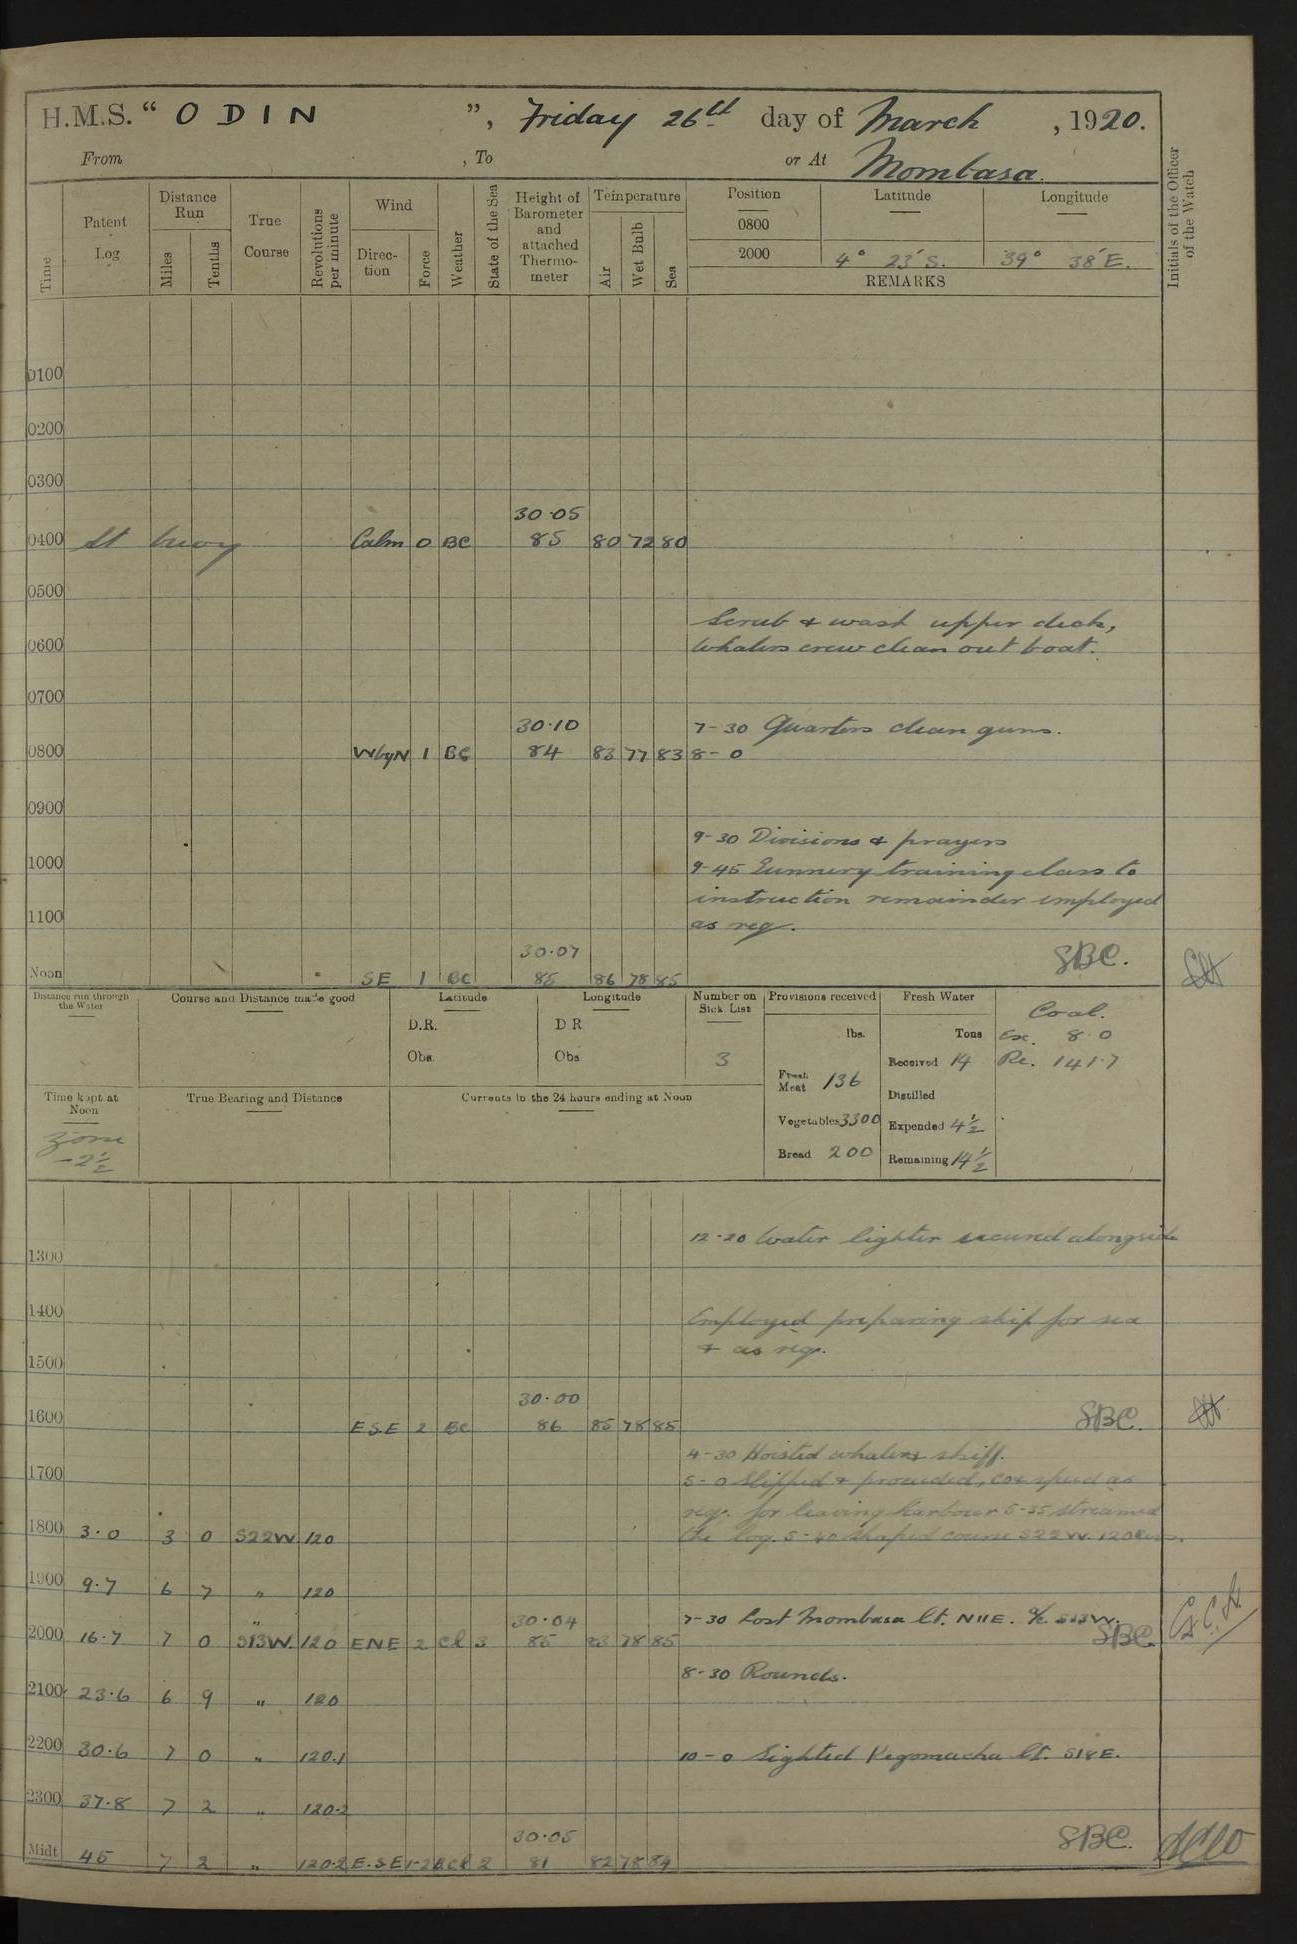 H.M.S. “ ODIN ”, Friday 26th day of March , 1920.
From , To or At Mombasa.
Time
Patent Log
Distance Run
Miles
Tenths
True Course
Revolutions per minute
Wind
Direc-tion
Force
Weather
State of the Sea
Height of Barometer and attached Thermo-meter
Temperature
Air
Wet Bulb
Sea
Position
Latitude
Longitude
0800
2000 4° 23' S. 39° 38' E.
REMARKS
Initials of the Officer of the Watch
0100
0200
0300
30·05
0400 At buoy Calm 0 BC 85 80 72 80
0500
Scrub & wash upper deck,
0600 Whalers crew clean out boat.
0700
30·10 7-30 Quarters clean guns.
0800 WbyN 1 BC 84 83 77 83 8-0
0900
9-30 Divisions & prayers
1000 9-45 Gunnery training class to
instruction remainder employed
1100 as req.
30·07 SBC.
Noon SE 1 BC 85 86 78 85
Distance run through the Water
Course and Distance made good
Latitude
D.R.
Obs.
Longitude
D R
Obs
Number on Sick List
3
Provisions received
lbs.
Fresh Meat 136
Vegetables 3300
Bread 200
Fresh Water
Tons
Received 14
Distilled
Expended 4½
Remaining 14½
Coal.
Ex. 8·0
Re. 141·7
Time kept at Noon
Zone -2½
True Bearing and Distance
Currents in the 24 hours ending at Noon
12-20 Water lighter secured alongside
1300
1400 Employed preparing ship for sea
& as req.
1500
30·00
1600 ESE 2 BC 86 85 78 85 SBC.
4-30 Hoisted whalers skiff.
1700 5-0 Slipped & proceeded, co & speed as
req. for leaving harbour 5-35 streamed
1800 3·0 3 0 S22W 120 the log. 5-40 Shaped course S22W. 120 revs.
1900 9·7 6 7 „ 120
„ 30·04 7-30 Lost Mombasa lt. N11E. a/c S13W.
2000 16·7 7 0 S13W. 120 ENE 2 Cl 3 85 83 78 85 SBC
8-30 Rounds.
2100 23·6 6 9 „ 120
2200 30·6 7 0 „ 120.1 10-0 Sighted Kegomacha lt. S18E.
2300 37·8 7 2 „ 120·2
30·05 SBC.
Midt 45 7 2 „ 120·2 E.SE 1-2 BCl 2 81 82 78 84